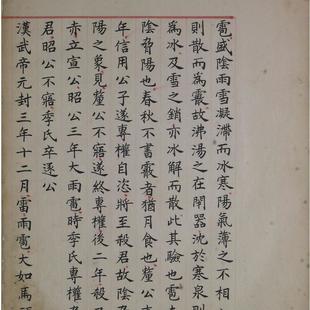 雹盛陰雨雪凝滯而冰寒陽氣薄之不相
則散而為霰故沸湯之在閉器沈於寒泉則
為冰及雪之銷亦冰解而散此其驗也雹
陰脅陽也春秋不書霰者猶月食也釐公
年信用公子遂專權自恣將至殺君故陰
陽之象見釐公不寤遂終專權後二年殺
赤立宣公昭公三年大雨雹時季氏專權
君昭公不寤季氏卒逐公
漢武帝元封三年十二月雷雨雹大如馬